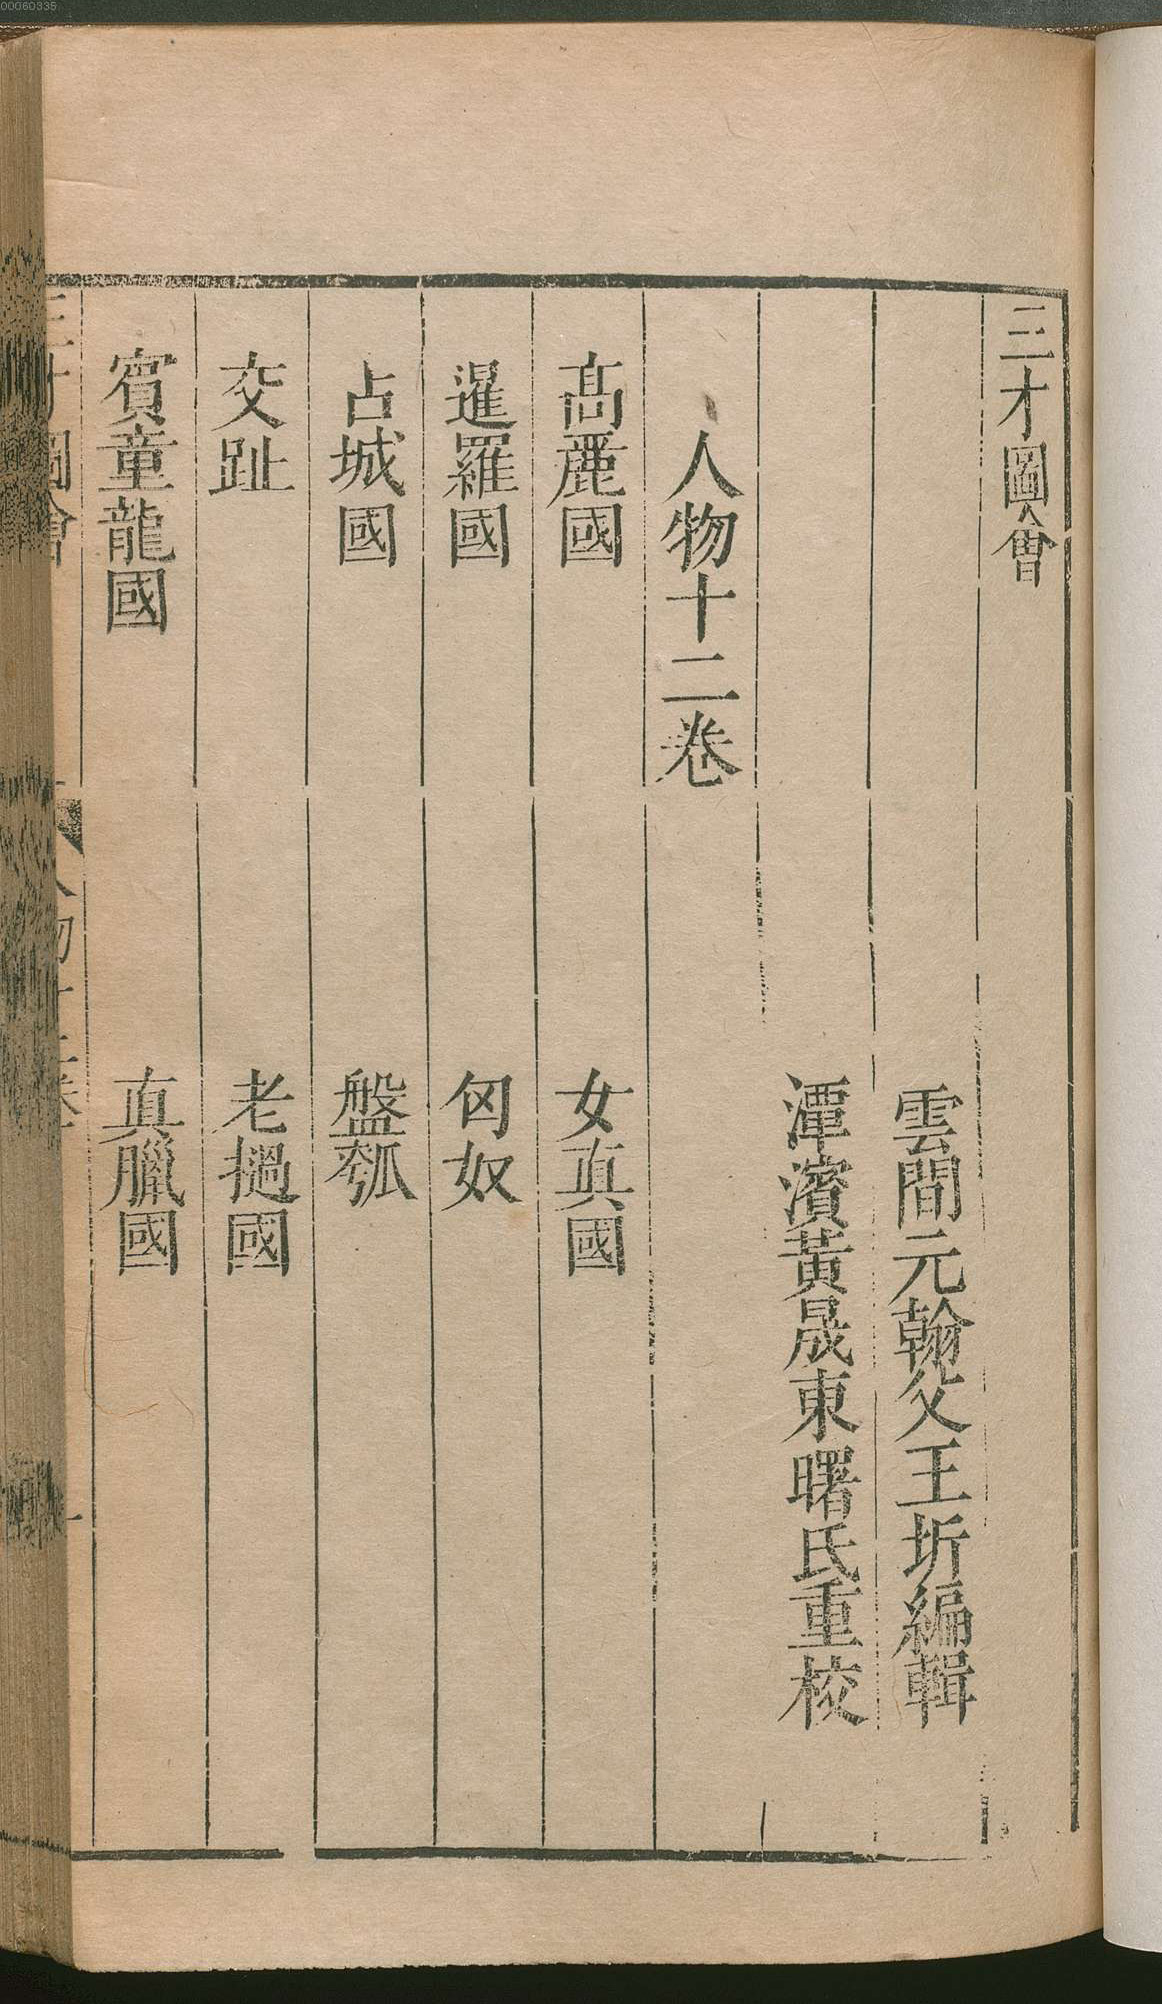 三才圖會
雲間元翰父王圻編輯
潭濱黃晟東曙氏重校
人物十二卷
髙麗國 女真國
暹羅國 匈奴
占城國 盤瓠
交趾 老撾國
賓童龍國 真臘國
三才圖會 人物十二卷 一
00060335